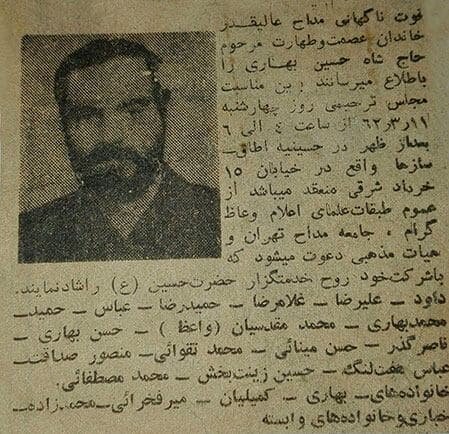 فوت ناگهانی مداح عالیقدر
خاندان عصمت وطهارت مرحوم
حاج شاه حسین بهاری را
باطلاع میرسانند بدین مناسبت
مجلس ترحیمی روز چهارشنبه
۶۲ر۳ر۱۱ از ساعت ٤ الی ٦
بعداز ظهر در حسینیه اطاق‌ـ
سازها واقع در خیابان ۱۵
خرداد شرقی منعقد میباشد از
عموم طبقات‌علمای اعلام وعاظ
گرام ، جامعه مداح تهران و
هیات مذهبی دعوت میشود که
باشرکت‌خود روح خدمتگزار حضرت‌حسین (ع) راشادنمایند.
داود ــ علیرضا ــ غلامرضا ــ حمیدرضا ــ عباس ــ حمیدــ
محمدبهاری ــ محمد مقدسیان (واعظ) ــ حسن بهاری ــ
ناصر گذر ــ حسن مینائی ــ محمد تقوائی‌ــ منصور صداقت‌ــ
عباس هفت‌لنگ ــ حسین زینت‌بخش ــ محمد مصطفائی.
خانواده‌های‌ــ بهاری ــ کمیلیان ــ میرفخرائی‌ــ محمدزاده‌ــ
خبازی‌و خانواده‌های وابسته